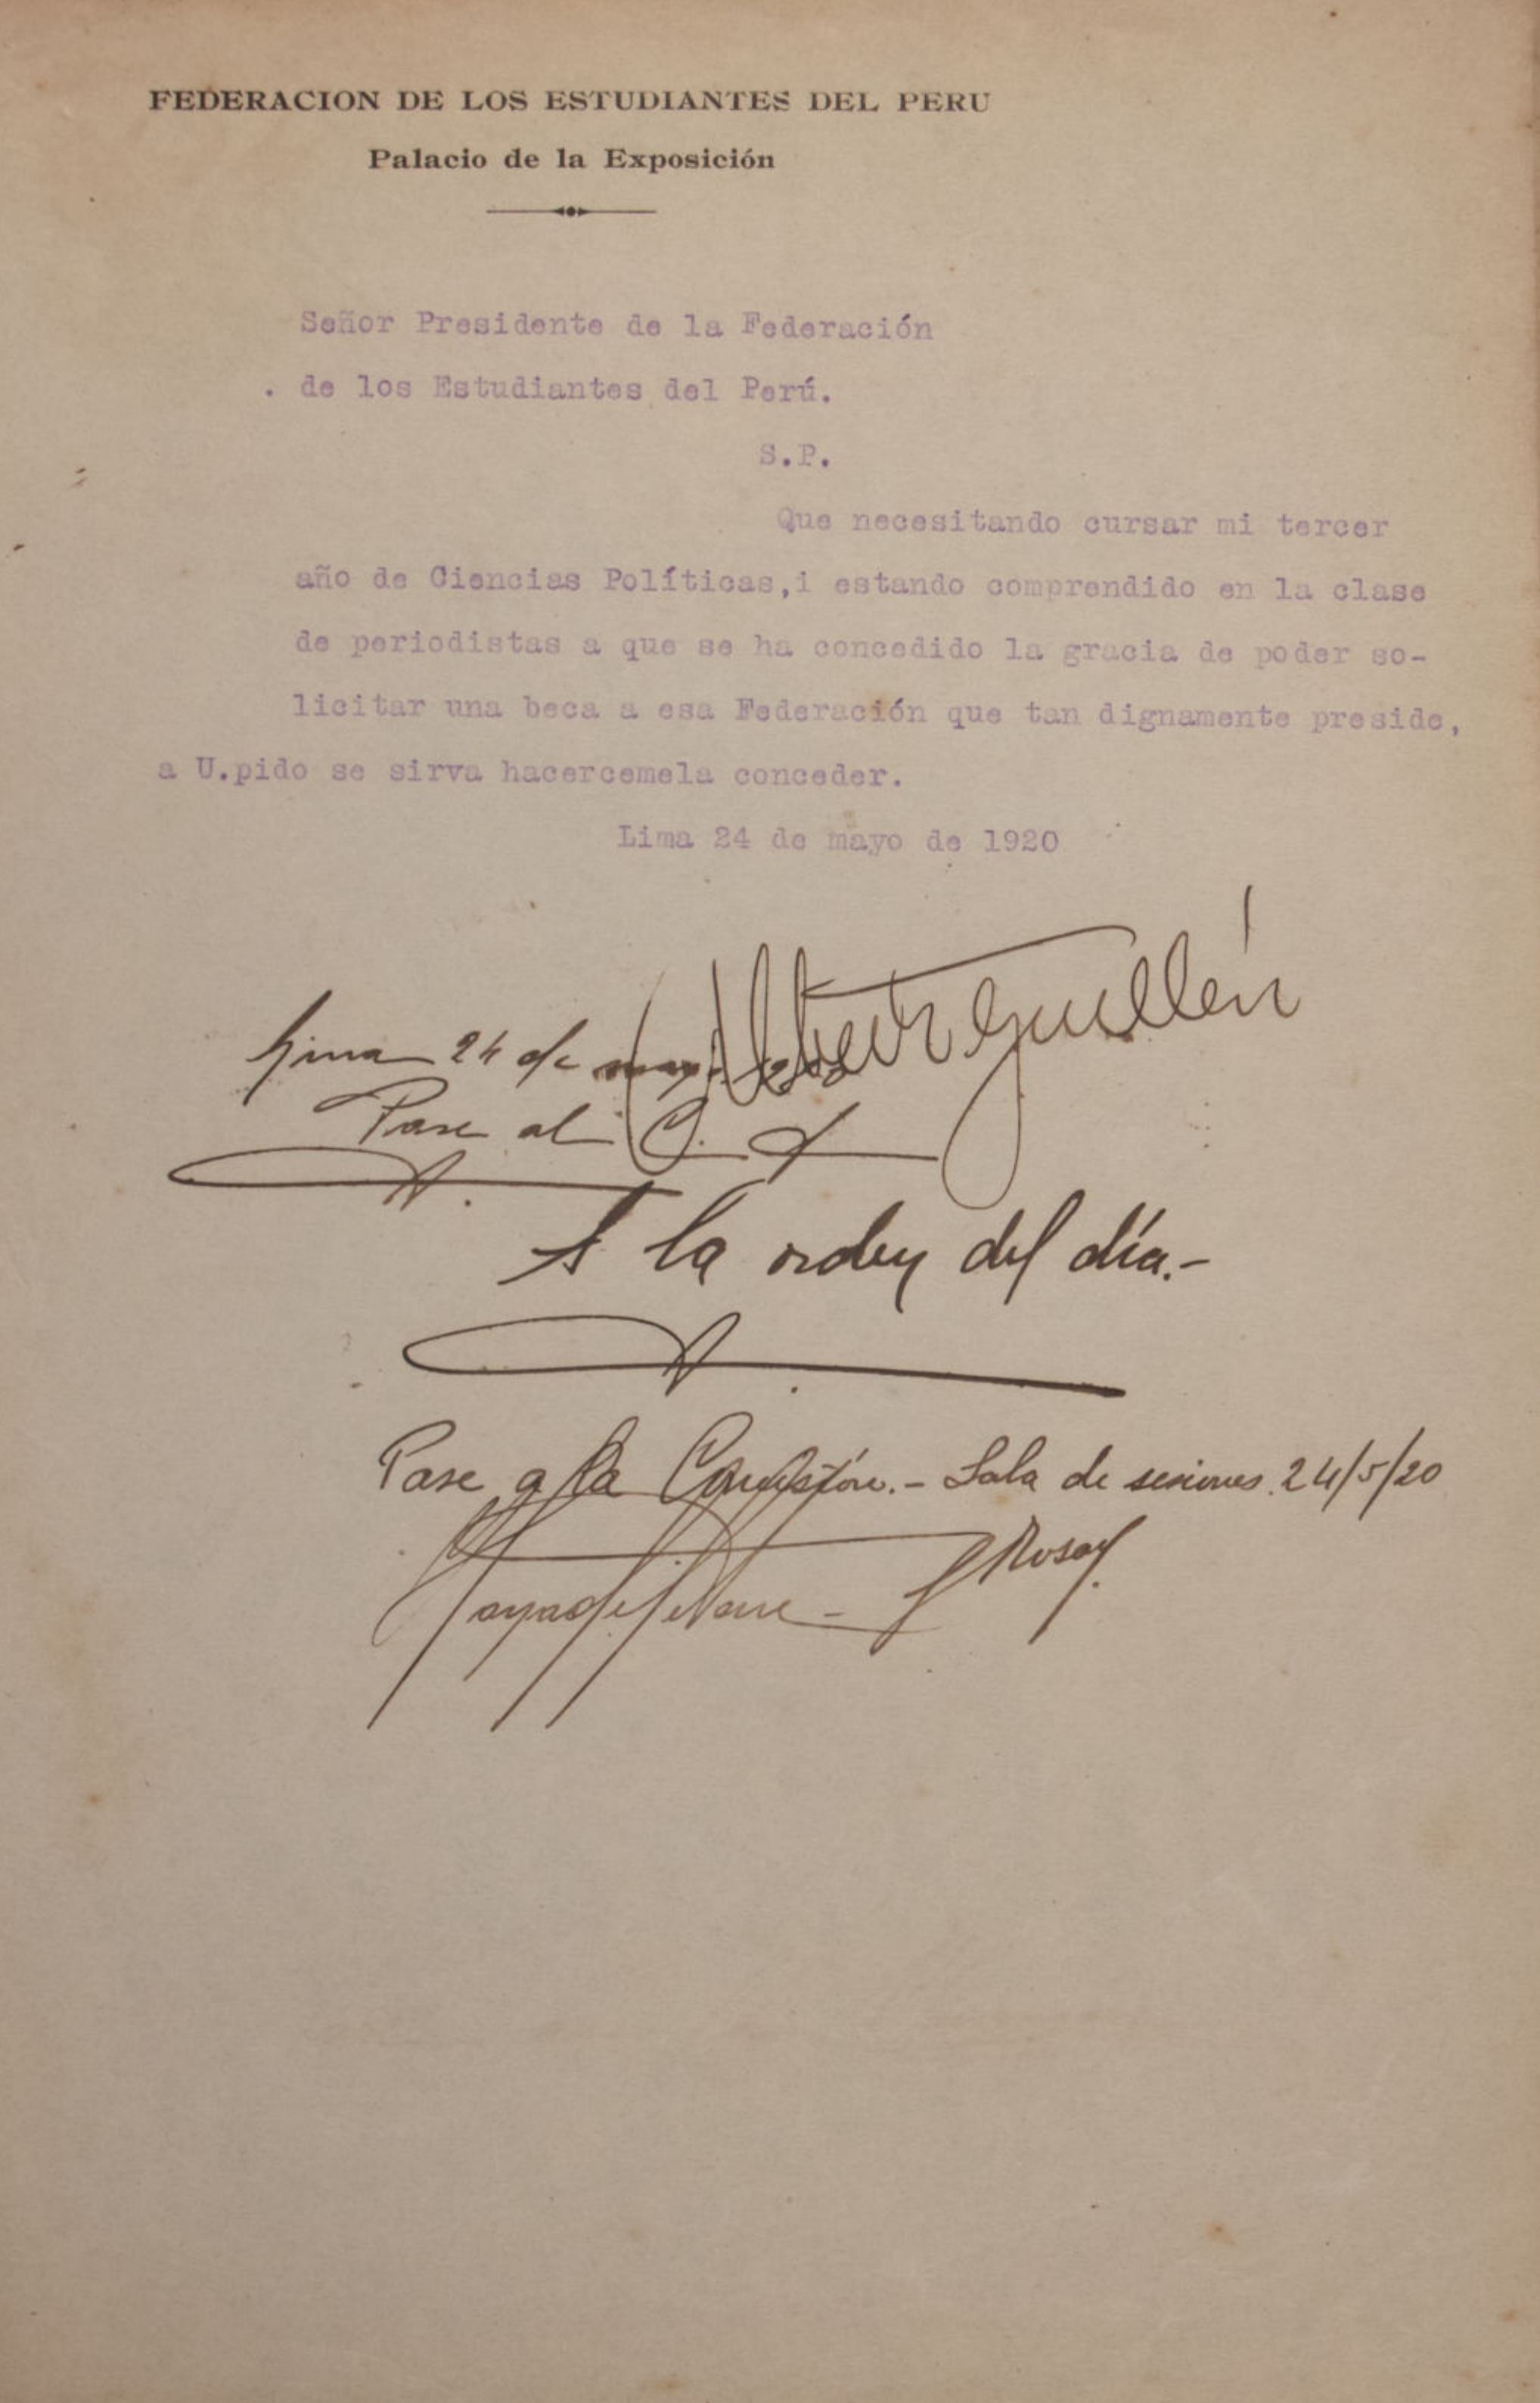 FEDERACION DE LOS ESTUDIANTES DEL PERU
Palacio de la Exposición
Señor Presidente de la Federación
. de los Estudiantes del Perú.
S.P.
Que necesitando cursar mi tercer
año de Ciencias Políticas,i estando comprendido en la clase
de periodistas a que se ha concedido la gracia de poder so-
licitar una beca a esa Federación que tan dignamente preside,
a U.pido se sirva hacercemela conceder.
Lima 24 de mayo de 1920
Guillén
Lima 24 de mayo
Pase al C.
A la orden del día.-
Pase a la Comisión.- Sala de sesiones. 24/5/20
Haya de la Torre